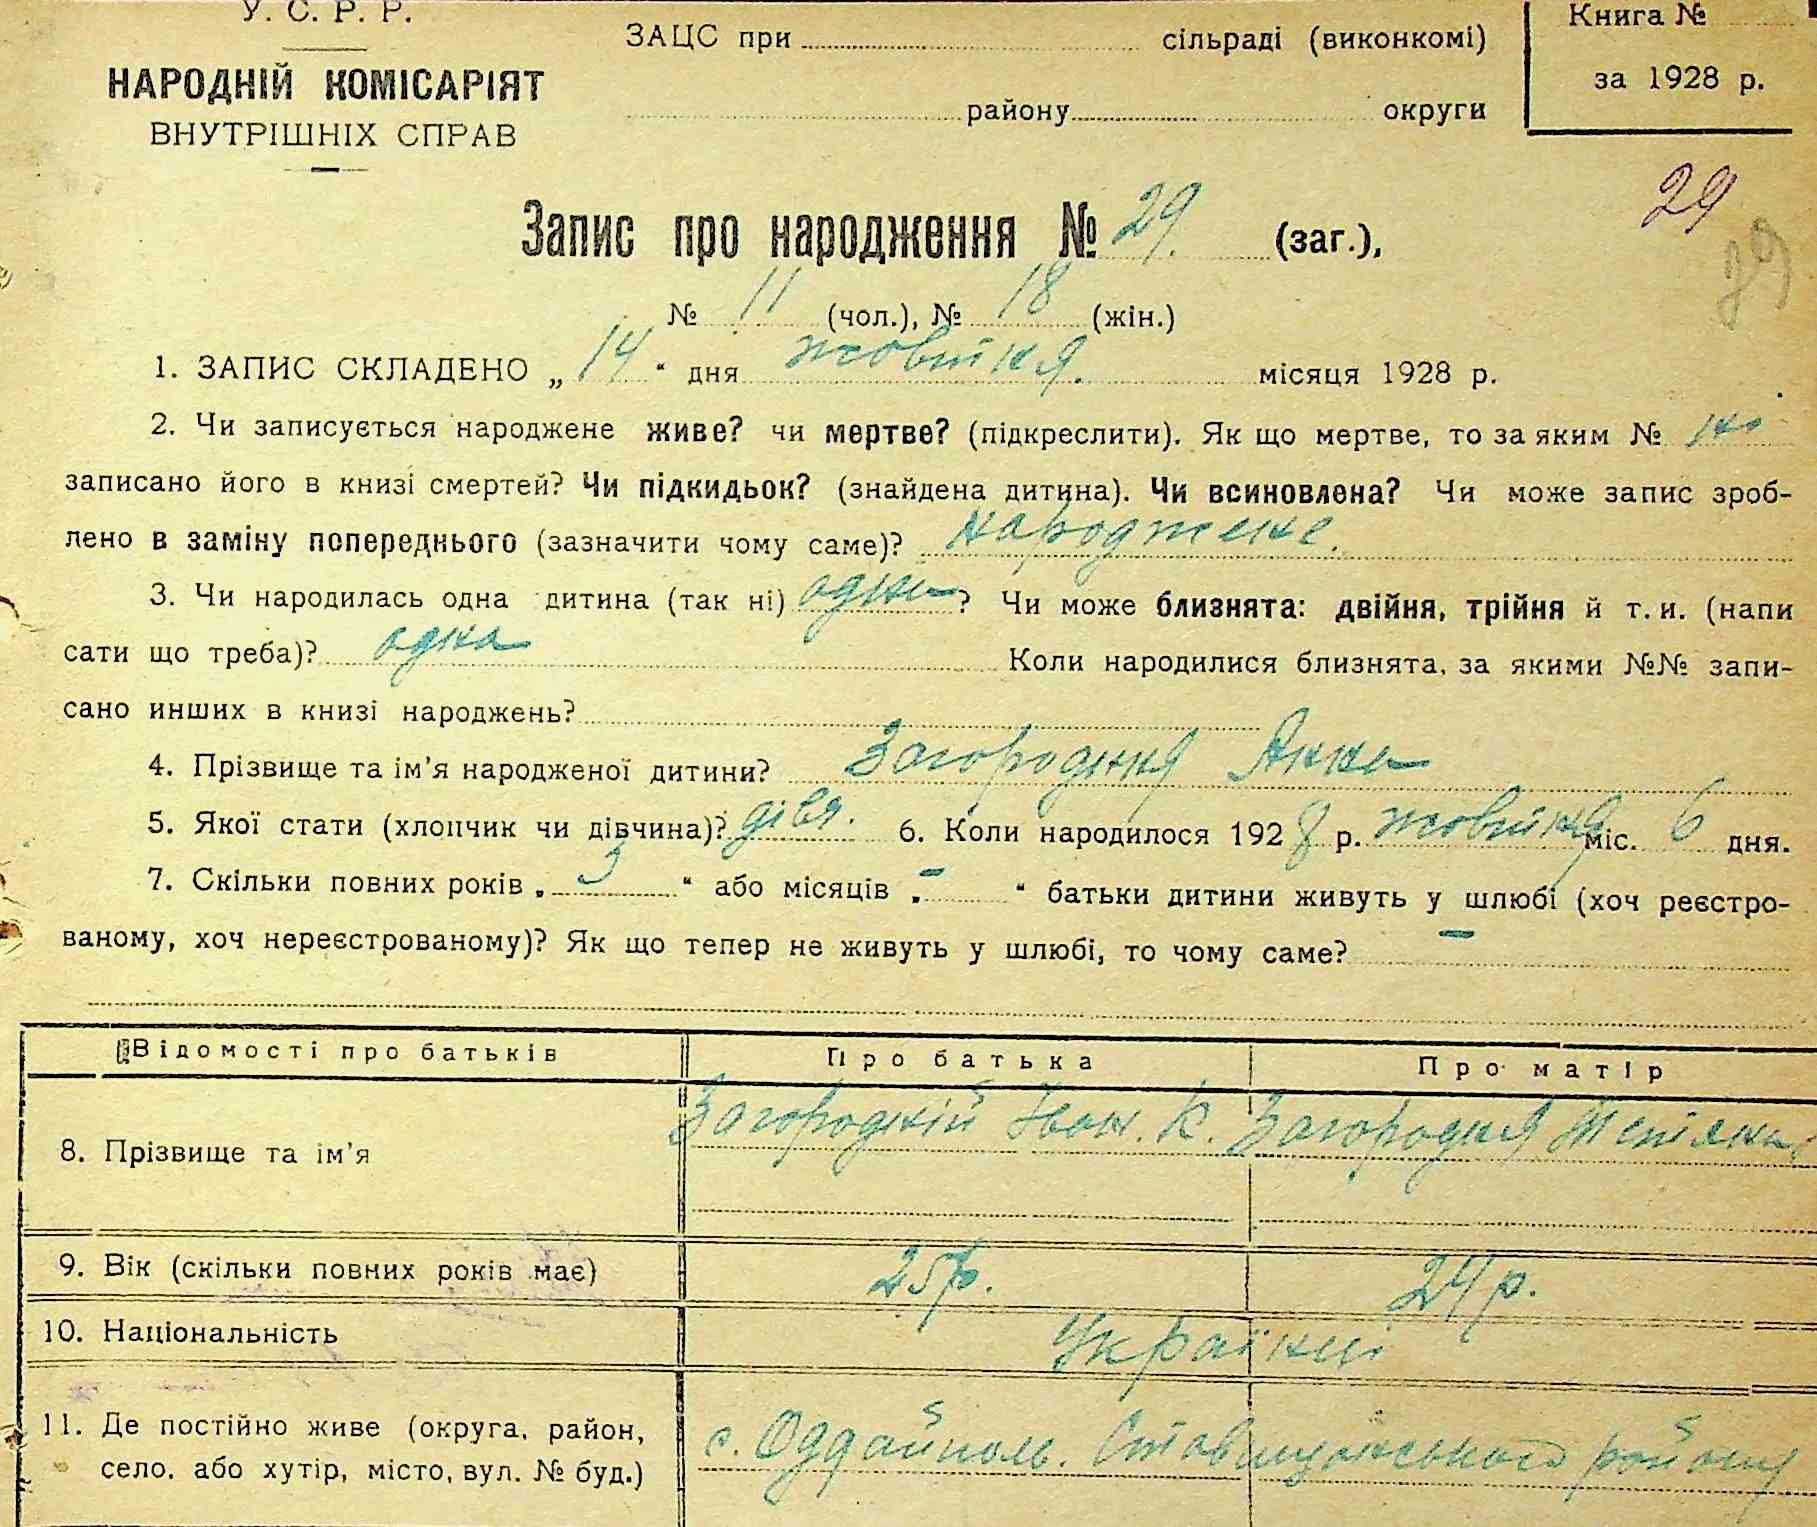 У. С. Р. Р.
НАРОДНІЙ КОМІСАРІЯТ
ВНУТРІШНІХ СПРАВ
ЗАЦС при сільраді (виконкомі)
району округи
Книга №
за 1928 р.
29
29
Запис про народження № 29. (заг.),
№ 11 (чол.), № 18 (жін.)
1. ЗАПИС СКЛАДЕНО „ 14 “ дня жовтня. місяця 1928 р.
2. Чи записується народжене живе? чи мертве? (підкреслити). Як що мертве, то за яким №
записано його в книзі смертей? Чи підкидьок? (знайдена дитина). Чи всиновлена? Чи може запис зроб-
лено в заміну попереднього (зазначити чому саме)? народжене.
3. Чи народилась одна дитина (так ні) одна? Чи може близнята: двійня, трійня й т. и. (напи
сати що треба)? одна Коли народилися близнята, за якими №№ запи-
сано инших в книзі народжень?
4. Прізвище та ім’я народженої дитини? Загородня Янка
5. Якої стати (хлопчик чи дівчина)? дівч. 6. Коли народилося 1928 р. жовтня міс. 6 дня.
7. Скільки повних років „ 3 “ або місяців „ – “ батьки дитини живуть у шлюбі (хоч реєстро-
ваному, хоч нереєстрованому)? Як що тепер не живуть у шлюбі, то чому саме? –
Відомості про батьків Про батька Про матір
8. Прізвище та ім’я Загородній Іван. К. Загородня Тетяна
9. Вік (скільки повних років має) 25 р. 24 р.
10. Національність Українці
11. Де постійно живе (округа, район,
село, або хутір, місто, вул. № буд.) с. Оддайполь. Ставищанського району